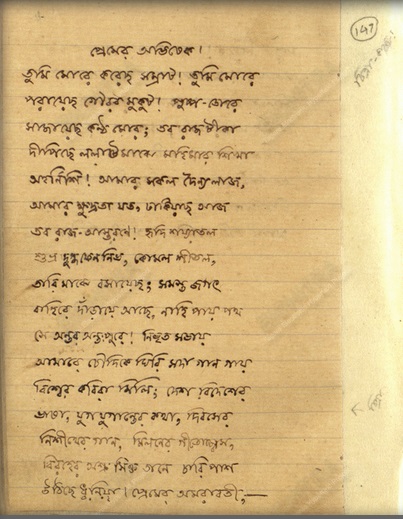 147
প্রেমের অভিষেক।
তুমি মোরে করেছ সম্রাট! তুমি মোরে
পরায়েছ গৌরব মুকুট! পুষ্প-ডোরে
সাজায়েছ কণ্ঠ মোর; তব রাজটীকা
দীপিছে ললাটমাঝে মহিমার শিখা
অহর্নিশি! আমার সকল দৈন্য লাজ,
আমার ক্ষুদ্রতা যত, ঢাকিয়াছ আজ
তব রাজ-আস্তরণে! হৃদি শয্যাতল
শুভ্র দুগ্ধফেননিভ, কোমল শীতল,
তারি মাঝে বসায়েছ; সমস্ত জগৎ
বাহিরে দাঁড়ায়ে আছে, নাহি পায় পথ
সে অন্তর অন্তঃপুরে! নিভৃত সভায়
আমারে চৌদিকে ঘিরি সদা গান গায়
বিশ্বের কবিরা মিলি; দেশ বিদেশের
ভাষা, যুগ যুগান্তের কথা, দিবসের
নিশীথের গান, মিলনের
বিরহের সিক্ত তানে চারি পাশ
উঠিছে ধ্বনিয়া! প্রেমের অমরাবতী,—